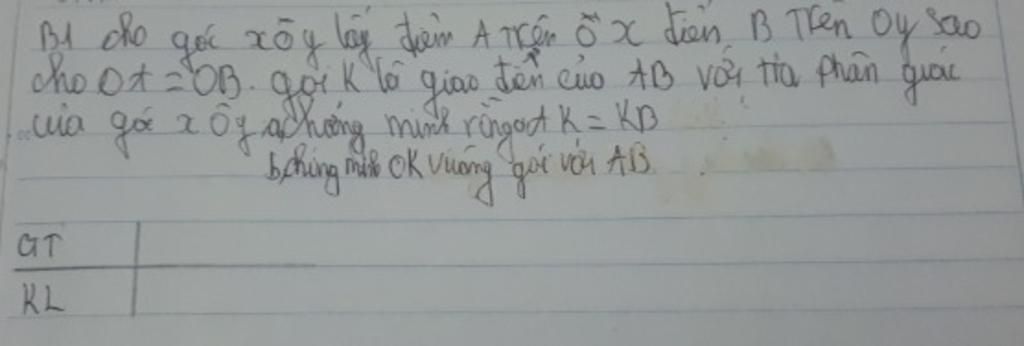 B1 cho góc xÔy lấy điểm A trên Ox điểm B trên Oy sao
cho OA = OB. gọi K là giao điểm của AB với tia phân giác
của góc xÔy a, chứng minh rằng AK = KB
b, chứng minh OK vuông góc với AB
GT
KL